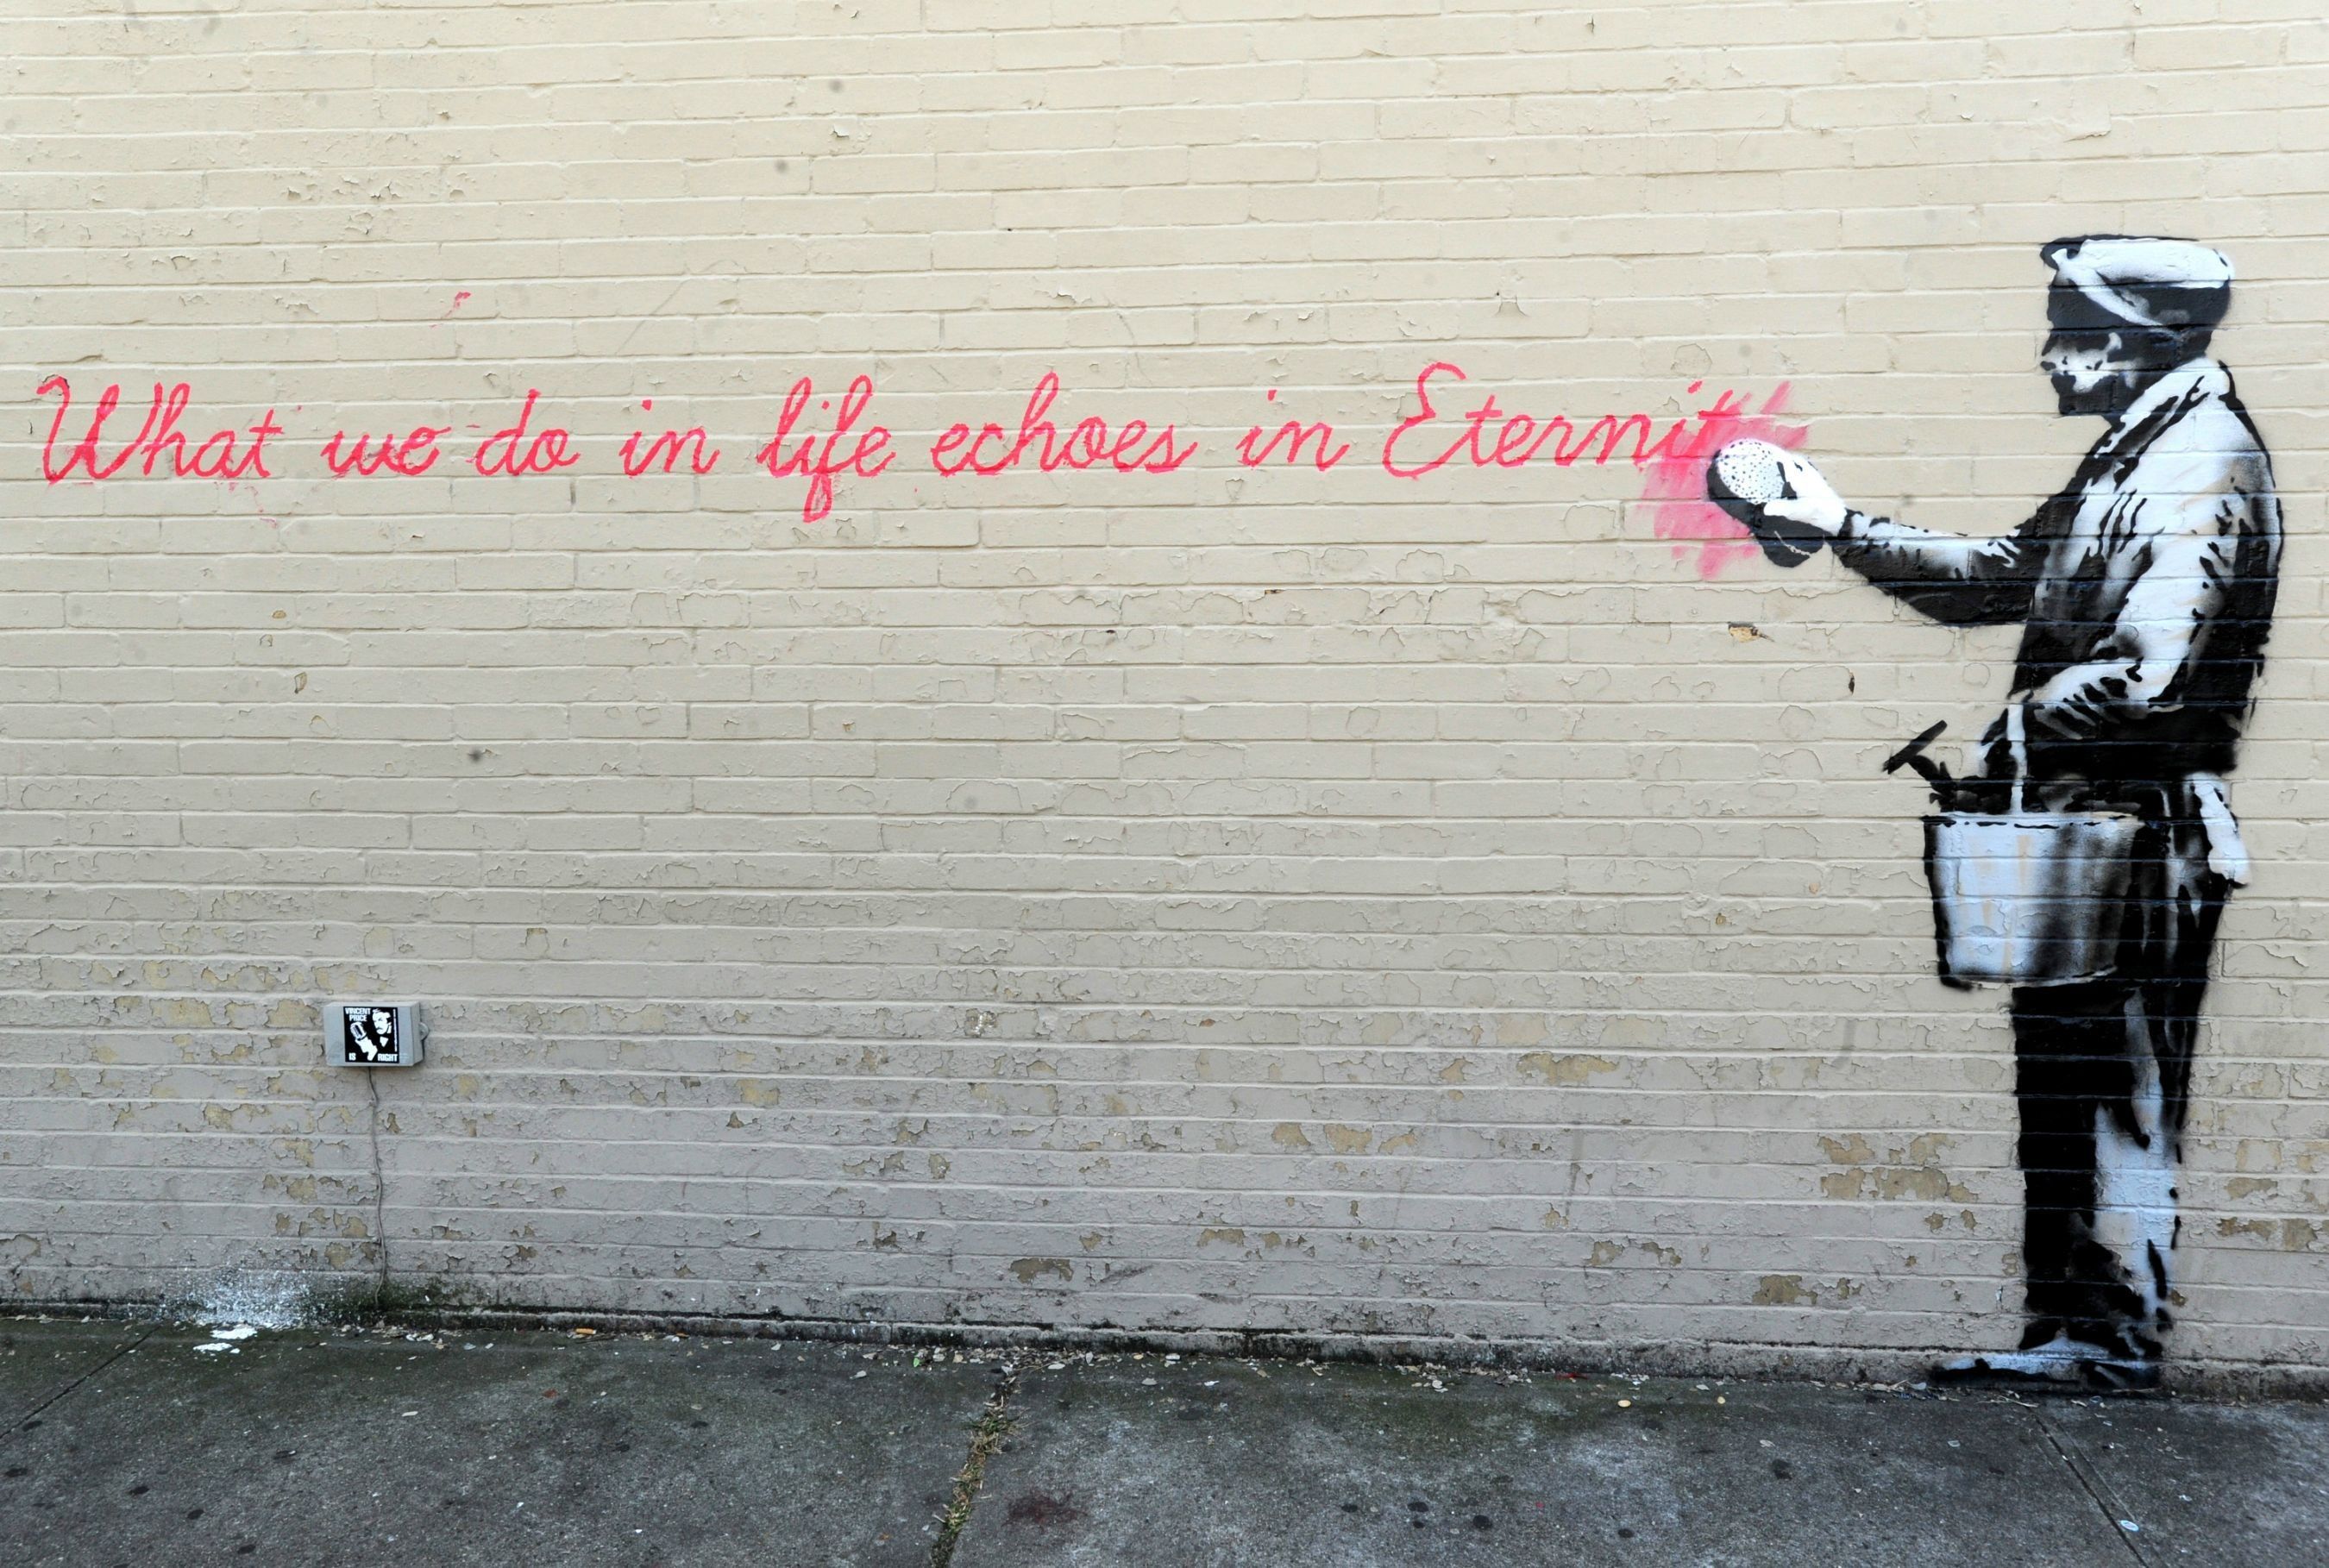 What we do in life echoes in Eternit
VINCENT
PRICE
IS RIGHT